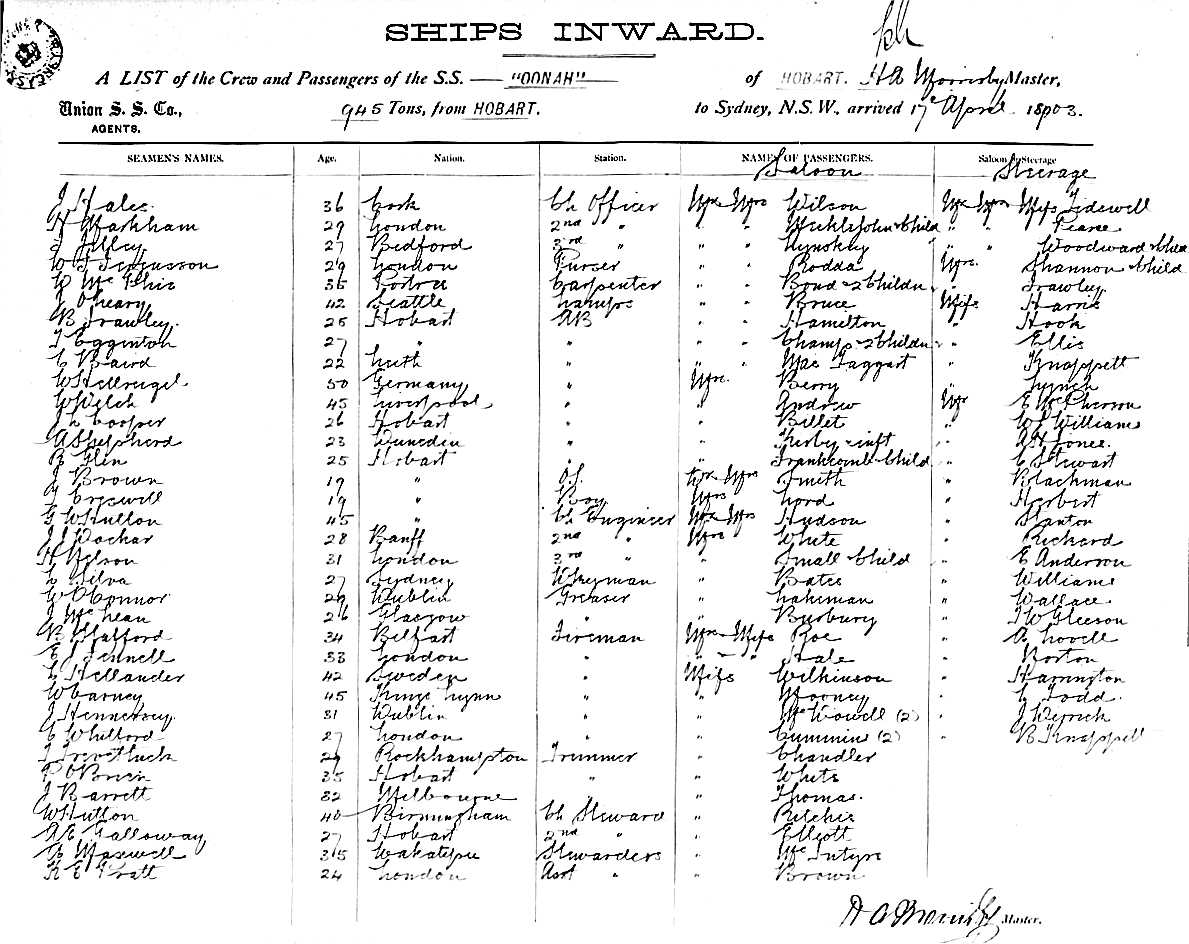 SHIPS INWARD.
A LIST of the Crew and Passengers of the S.S. "OONAH" of HOBART. Master,
Union S. S. Co., 945 Tons, from HOBART. to Sydney, N.S.W., arrived 17 April 1903.
AGENTS.
SEAMEN'S NAMES. Age. Nation. Station. NAMES OF PASSENGERS. Saloon or Steerage
Saloon Steerage
J Hales 36 Cork Ch Officer Mr Mrs Wilson Mr Mrs Miss Tidswell
Markham 29 London 2nd " " " Micklejohn & Child " " Pearce
Tilley 27 Bedford 3rd " " " Lynskey " " Woodward & Child
W Fergusson 29 London Purser " " Rodda Mrs. Shannon & Child
Mc Phie 35 Portree Carpenter " " Bond & 2 Childn " Frawley
J OLeary 42 Seattle Lamps " " Bruce Miss Harris
B Frawley 25 Hobart AB " " Hamilton " Hook
J Egginton 27 " " " " Champ & 2 Childn " Ellis
C Baird 22 Leith " " " Mac Taggart " Knappett
W 50 Germany " Mrs. Berry " Lynch
W Welch 45 Liverpool " " Andrew Mr E McPherson
J L Cooper 26 Hobart " " Billet " W Williams
A Shepherd 23 Dunedin " " Kirby & inft " A H Jones
R Glen 25 Hobart " " Frankcomb & Child " C Stewart
J Brown 19 " O.S. Mr Mrs Smith " Blackman
Creswell 19 " Boy Mrs Lord " Herbert
G W Hutton 45 " Ch Engineer Mr Mrs Hudson " Stanton
J Dockar 28 Banff 2nd " Mrs White " Richard
H Nelson 31 London 3rd " " Small & Child " E Anderson
C Silva 27 Sydney " Bates " Williams
OConnor 29 Dublin Greaser " Lakeman " Wallace
J McLean 26 Glasgow " " Busbury " J W Gleeson
B Stafford 34 Belfast Fireman Mr & Miss Roe " A Lovell
E J Fennell 33 London " " " Hale " Norton
C Hellander 42 Sweden " Miss Wilkinson " Harrington
W Carney 45 Kings Lynn " " Mooney " C Todd
J Hennessy 31 Dublin " " McDowell (2) " J
C Whitford 27 London " " Cummins (2) " B Knappett
J 29 Rockhampton Trimmer " Chandler
P OBrien 35 Hobart " " White
J Barrett 32 Melbourne " " Thomas
W Hutton 40 Birmingham Ch Steward " Ritchie
A E Galloway 27 Hobart 2nd " " Elliott
Maxwell 35 Wakatipu Stewardess " McIntyre
K E Pratt 24 London Asst " " Brown
Master.